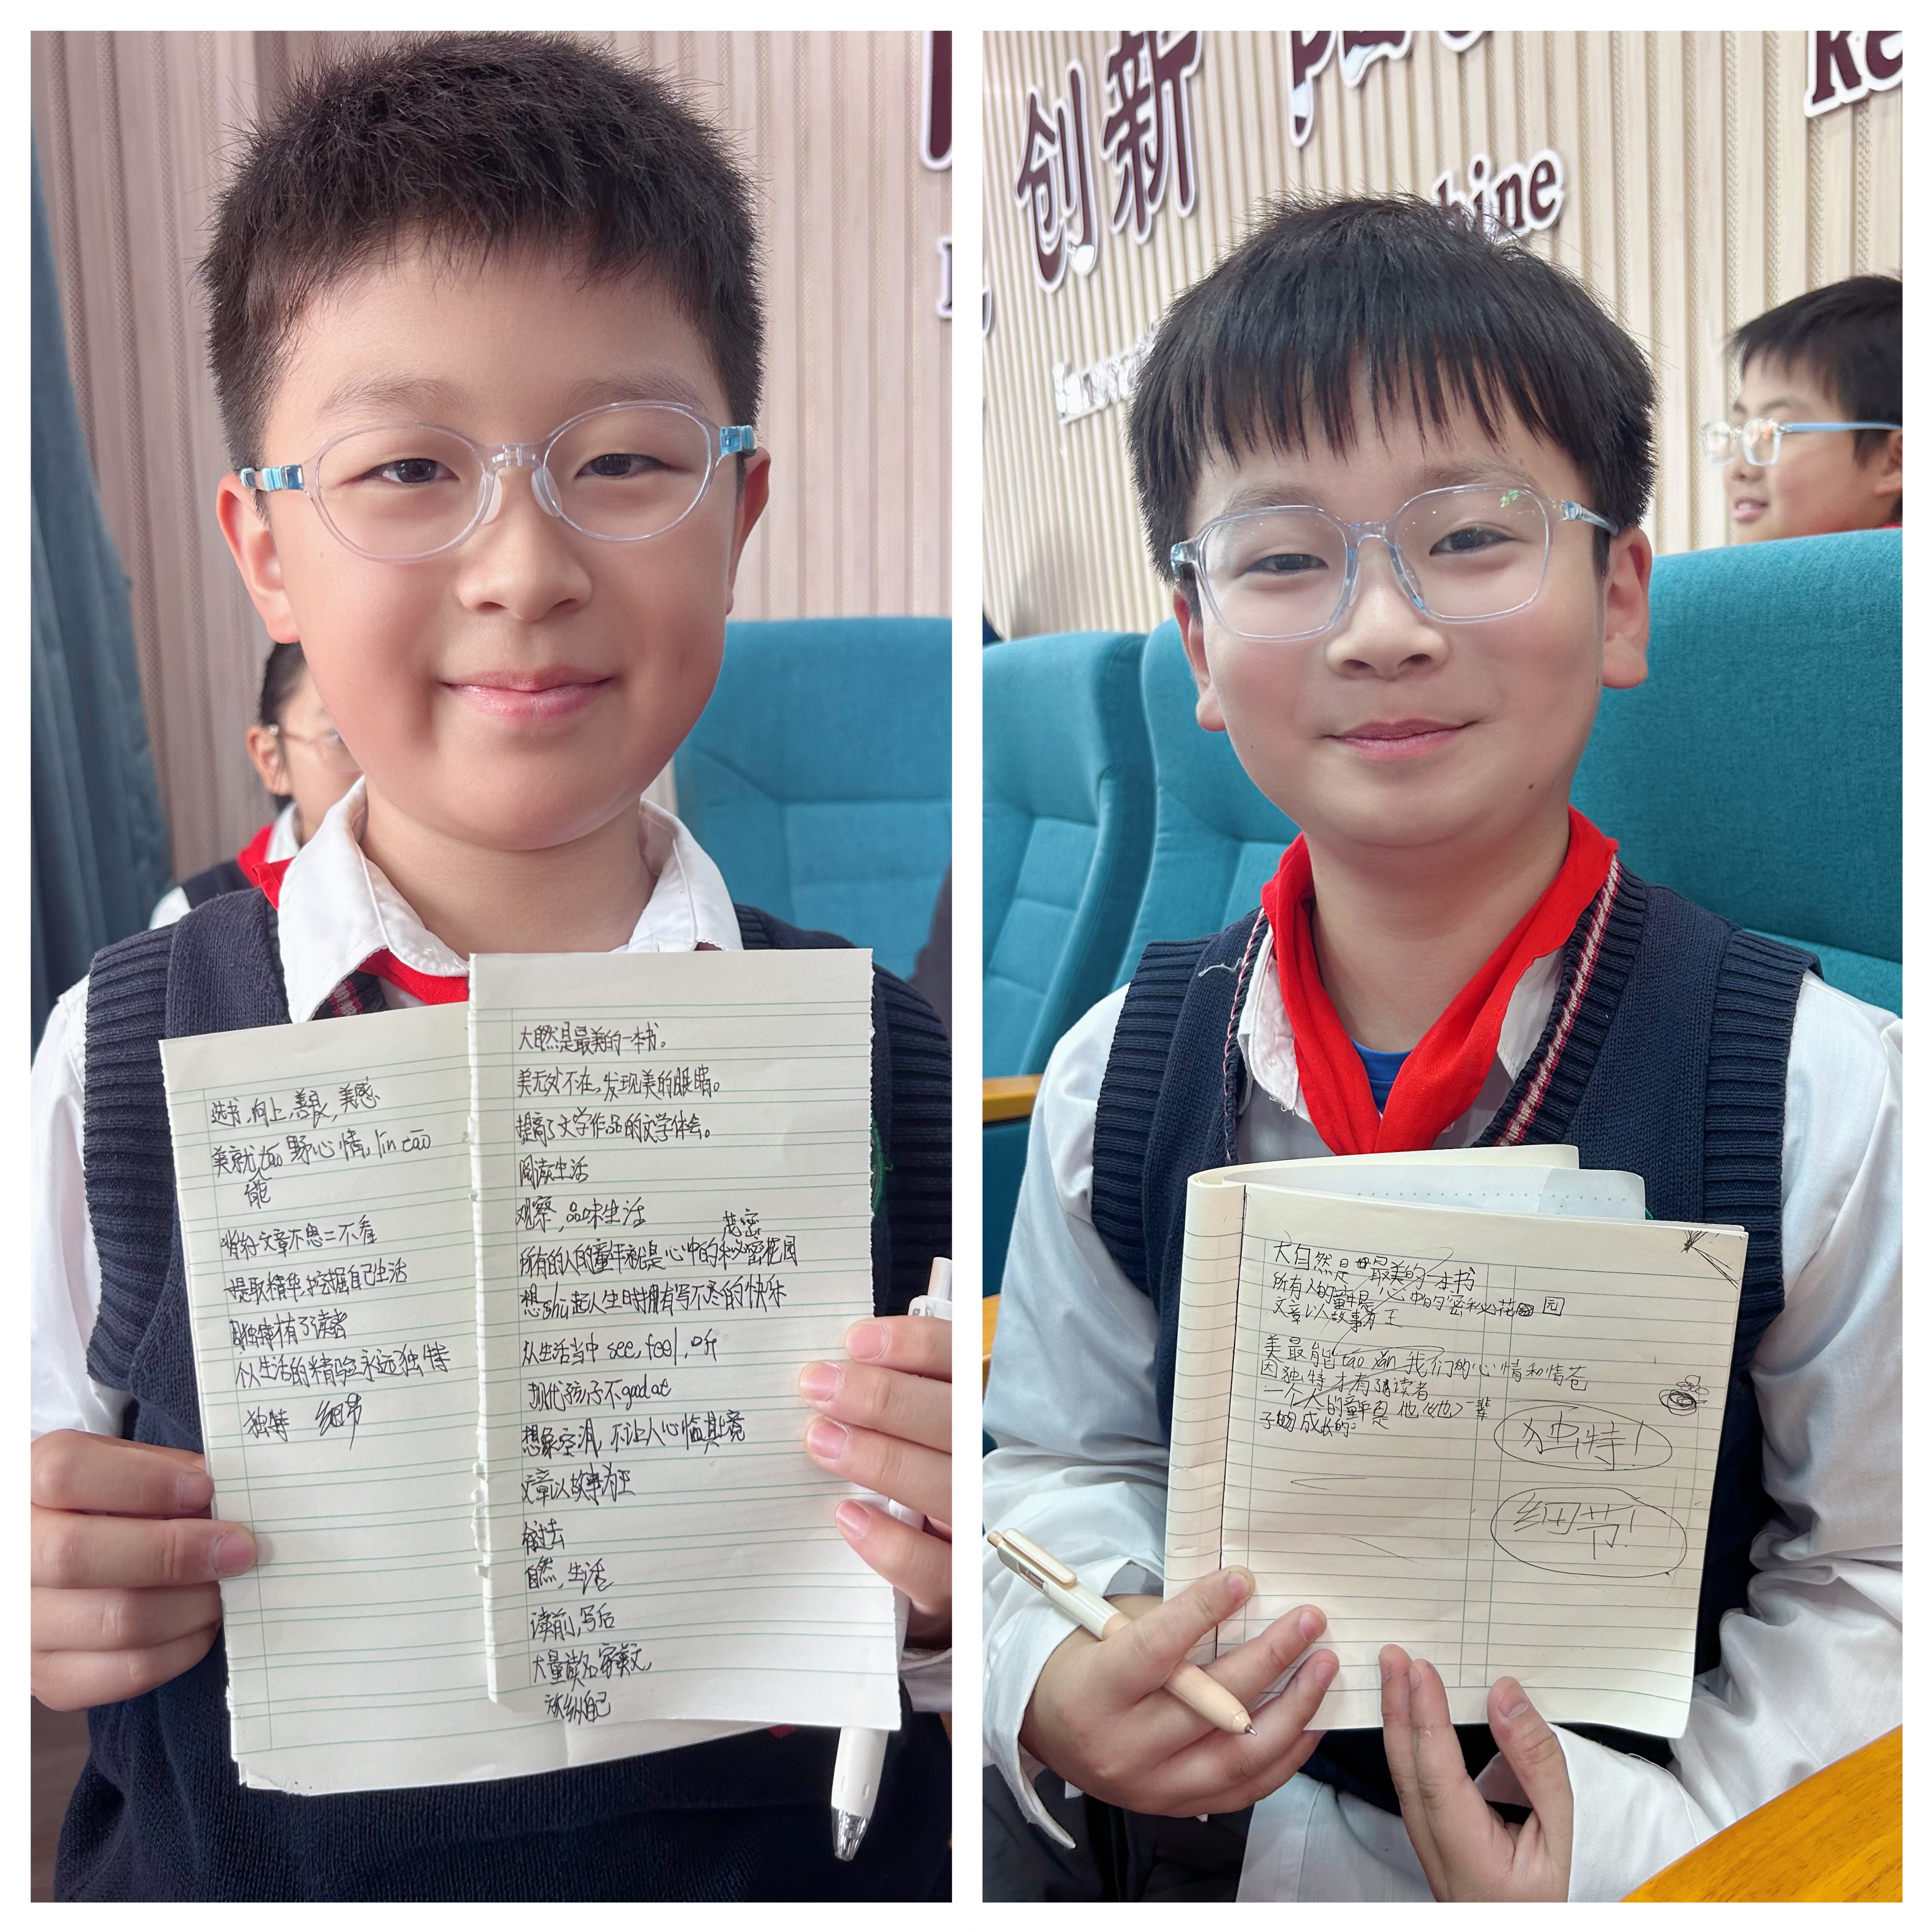 选书,向上,善良,美感
美就tao野心情, lin tāo
能
背好文章不愚二不看
提取精华,挖掘自己生活
独特有了读者
个人生活的精验永远独特
独特 细节
大自然是最美的一本书。
美无处不在,发现美的眼睛。
提高了文学作品的文学体会。
阅读生活
观察,品味生活
花密
所有的人的童年就是心中的秘密花园
想shù起人生时拥有写不尽的快乐
从生活当中 see, feel, 听
现代孩子不good at
想象空间,不让人心临其境
文章以故事为王
自然,生活
读前,写后
大量读名家美文,
放纵自己
创新
hine
Re
大自然是最美的一本书
所有人的童年是心中的密秘花园
文章以故事为王
美最能táo yǎn我们的心情和情苍
因独特才有了读者
一个人的童年是他(她)一辈
子的成长的:
独特!
细节!